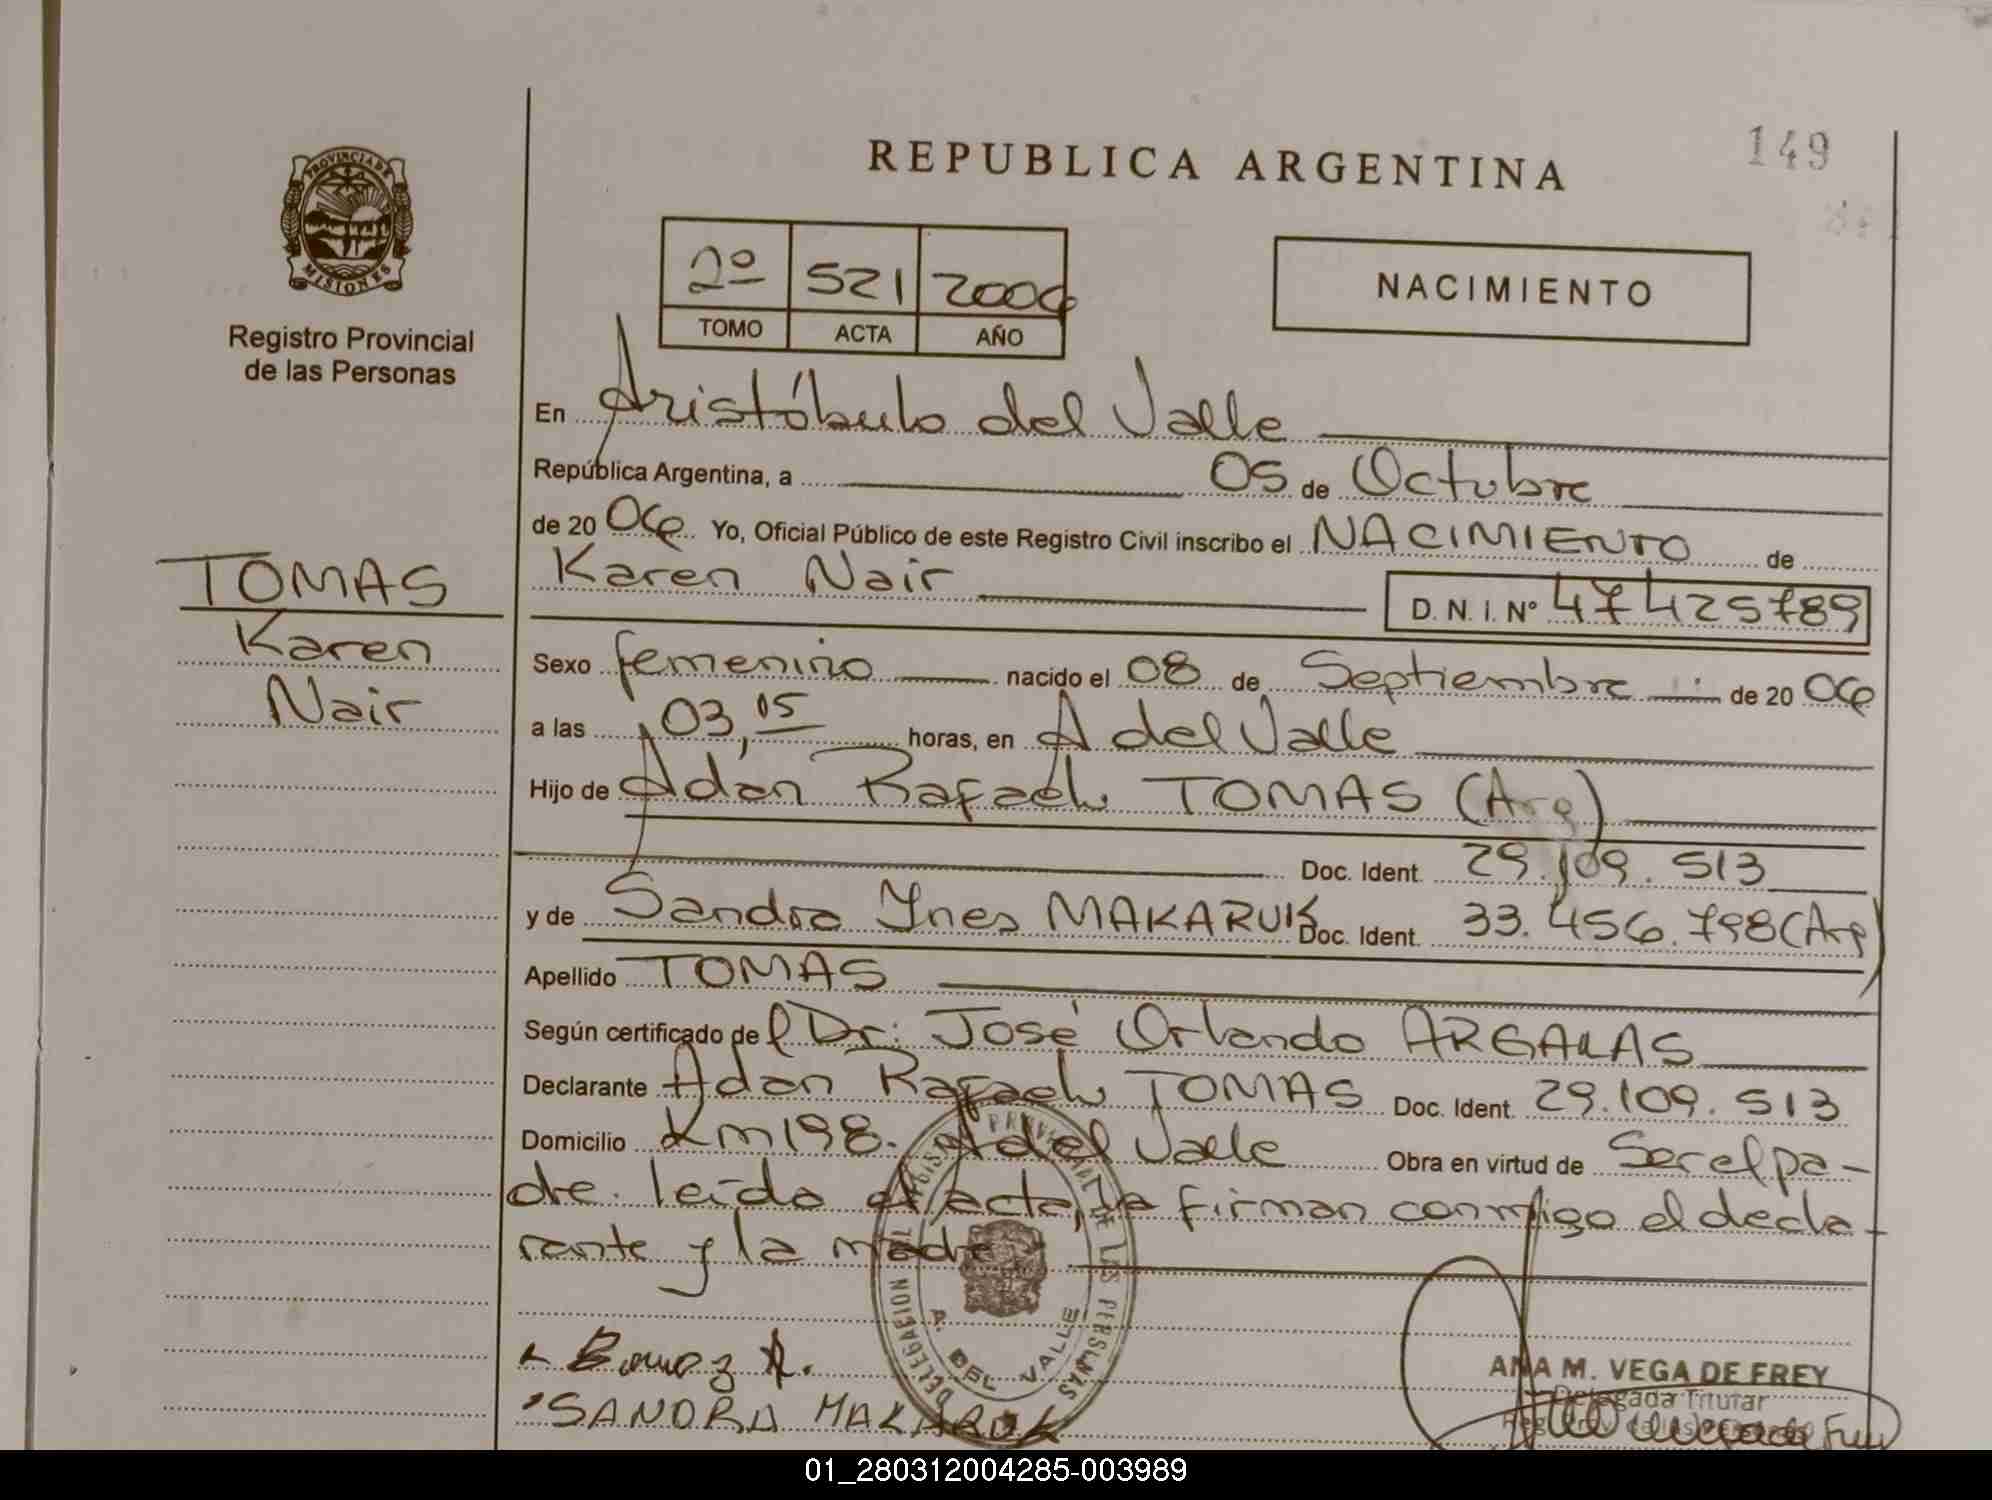 REPUBLICA ARGENTINA
149
PROVINCIA DE
MISIONES
Registro Provincial
de las Personas
2º 521 2006
TOMO ACTA AÑO
NACIMIENTO
En Aristóbulo del Valle
República Argentina, a 05 de Octubre
de 20 06 Yo, Oficial Público de este Registro Civil inscribo el NACIMIENTO de
Karen Nair D. N. I. Nº 47425789
TOMAS
Karen
Nair
Sexo femenino nacido el 08 de Septiembre de 20 06
a las 03,05 horas, en A del Valle
Hijo de Adán Rafael TOMAS (Arg)
Doc. Ident. 29.109.513
y de Sandra Ynes MAKARUK Doc. Ident. 33.456.798 (Arg)
Apellido TOMAS
Según certificado del Dr: José Orlando
Declarante Adan Rafael TOMAS Doc. Ident. 29.109.513
Domicilio Km 198. A del Valle Obra en virtud de Ser el pa-
dre. leída el acta, la firman conmigo el decla-
rante y la madre
REGISTRO PROVINCIAL DE LAS PERSONAS
DELEGACION
A. DEL VALLE
SANDRA MAKARUK
ANA M. VEGA DE FREY
Delegada Titular
01_280312004285-003989